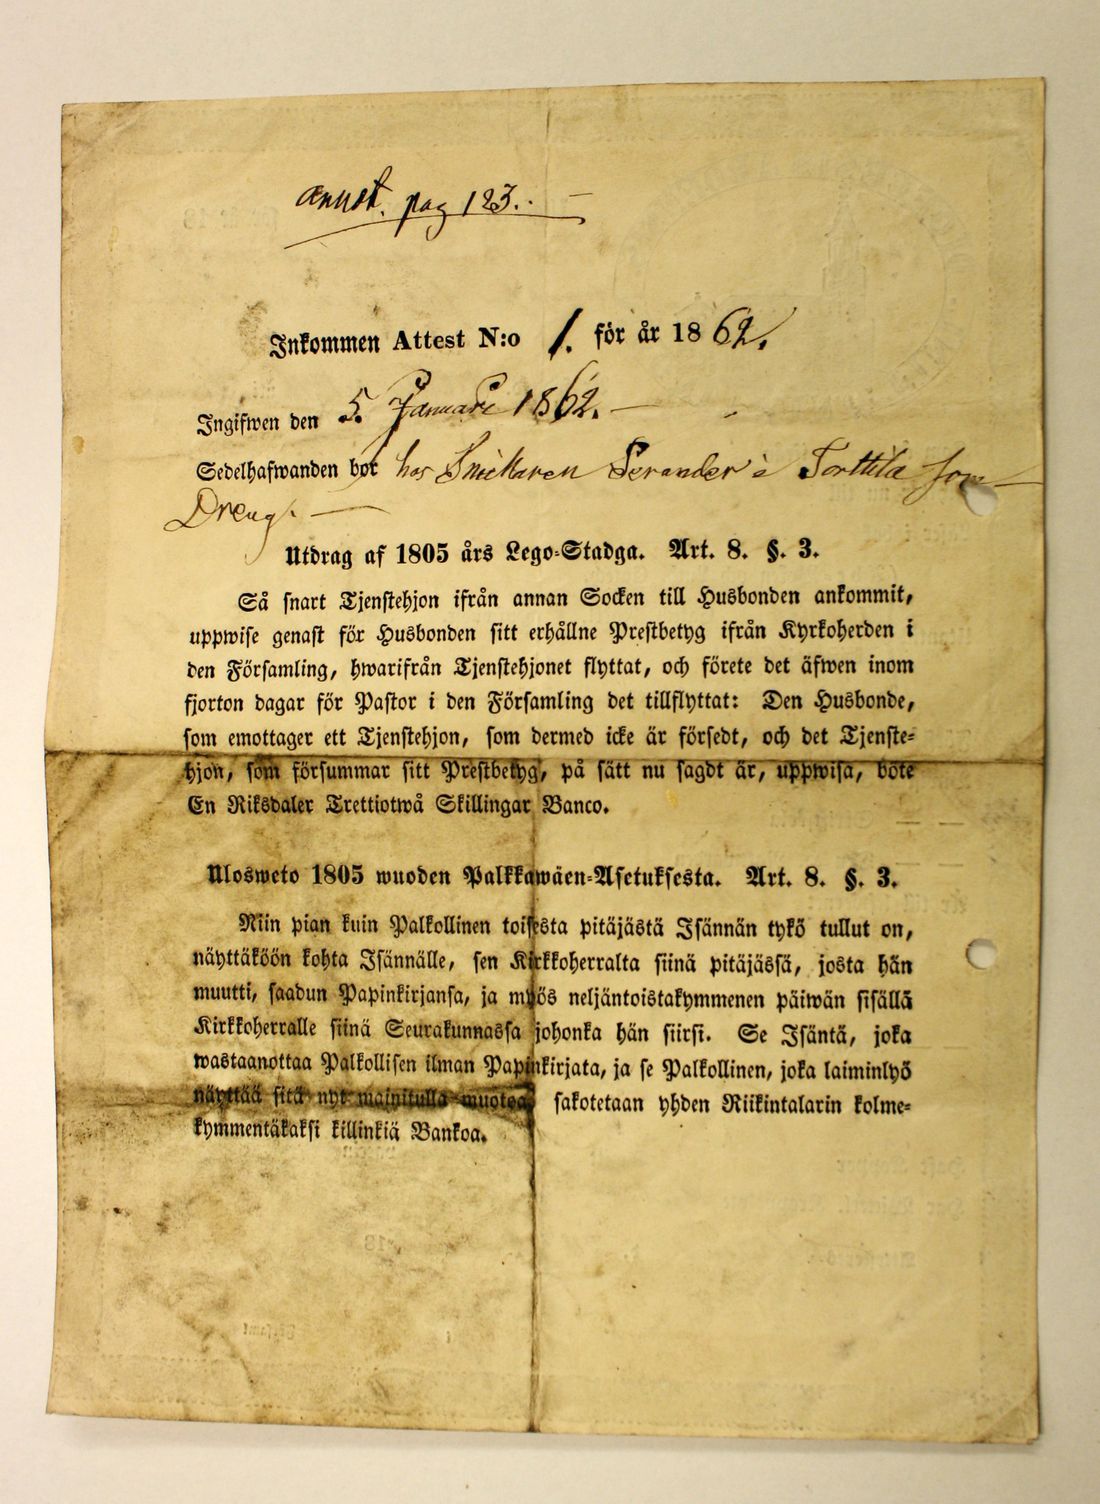 annot. pag 123.
Inkommen Attest N:o 1. för år 1862.
Ingifwen den 5. Januari 1862.
Sedelhafwanden bor hos Snickaren Serander i Torttila som
Dreng.
Utdrag af 1805 års Lego-Stadga. Art. 8. §. 3.
Så snart Tjenstehjon ifrån annan Socken till Husbonden ankommit,
uppwise genast för Husbonden sitt erhållne Prestbetyg ifrån Kyrkoherden i
den Församling, hwarifrån Tjenstehjonet flyttat, och förete det äfwen inom
fjorton dagar för Pastor i den Församling det tillflyttat: Den Husbonde,
som emottager ett Tjenstehjon, som dermed icke är försedt, och det Tjenste-
hjon, som försummar sitt Prestbetyg, på sätt nu sagdt är, uppwisa, böte
En Riksdaler Trettiotwå Skillingar Banco.
Ulosweto 1805 wuoden Palkkawäen-Asetuksesta. Art. 8. §. 3.
Niin pian kuin Palkollinen toisesta pitäjästä Isännän tykö tullut on,
näyttäköön kohta Isännälle, sen Kirkkoherralta siinä pitäjässä, josta hän
muutti, saadun Papinkirjansa, ja myös neljäntoistakymmenen päiwän sisällä
Kirkkoherralle siinä Seurakunnassa johonka hän siirsi. Se Isäntä, joka
wastaanottaa Palkollisen ilman Papinkirjata, ja se Palkollinen, joka laiminlyö
näyttää sitä nyt mainitulla muotoa, sakotetaan yhden Riikintalarin kolme-
kymmentäkaksi killinkiä Bankoa.